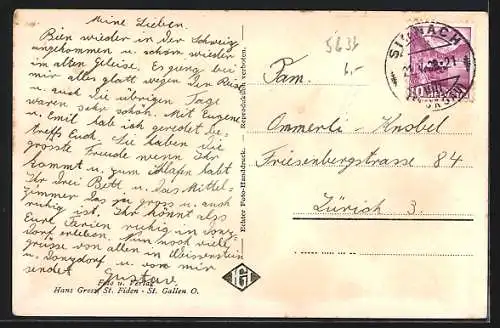 Meine Lieben.
Bin wieder in der Schweiz
angekommen u. schon wieder
im alten Geleise. Es ging bei
mir alles glatt wegen der Reise
u. auch die übrigen Tage
waren sehr schön. Mit Eugene
u. Emil hab ich geredet be-
treffs Euch. Sie haben die
grösste Freude wenn Ihr
kommt u. zum Schlafen habt
Ihr drei Bett u. das Mittel-
Zimmer das ist gross u. auch
ruhig ist. Ihr könnt also
Eure Ferien ruhig in
dorf erleben. Nun noch viele
grüsse von allen in Weissenstein
u. u. von mir
sendet Gustav
Foto u. Verlag
Hans Gross, St. Fiden - St. Gallen O.
Echter Foto-Handdruck. — Reproduktion verboten.
5633
6.-
SIRNACH
Fam.
Ommerli - Knobel
Friesenbergstrasse 84
Zürich 3.